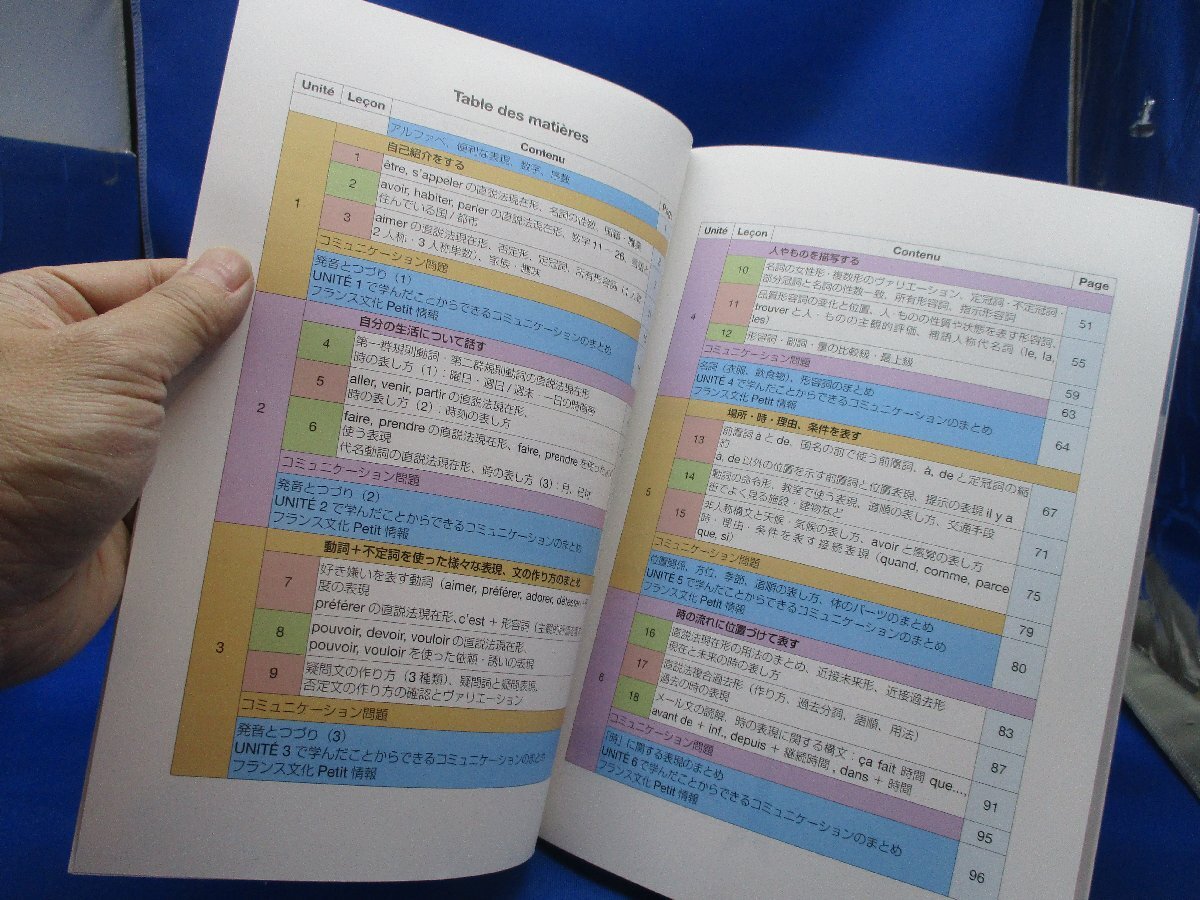 Table des matières
Unité Leçon Contenu
アルファベ、便利な表現、数字、
自己紹介をする
1 être, s'appeler の直説法現在形、名詞の性数、
2 avoir, habiter, parler の直説法現在形、数字 11 ~ 26、
住んでいる国 / 都市
1
3 aimer の直説法現在形、否定形、定冠詞、所有形容詞
2人称・3人称単数)、家族・趣味
コミュニケーション問題
発音とつづり (1)
UNITÉ 1 で学んだことからできるコミュニケーションのまとめ
フランス文化 Petit 情報
自分の生活について話す
4 第一群規則動詞・第二群規則動詞の直説法現在形
時の表し方 (1) : 曜日・週日 / 週末・一日の時間帯
5 aller, venir, partir の直説法現在形、
時の表し方 (2) : 時刻の表し方
2
6 faire, prendre の直説法現在形、faire, prendre を使った
使う表現
代名動詞の直説法現在形、時の表し方 (3) : 月、
コミュニケーション問題
発音とつづり (2)
UNITÉ 2 で学んだことからできるコミュニケーションのまとめ
フランス文化 Petit 情報
動詞+不定詞を使った様々な表現、文の作り方のまとめ
7 好き嫌いを表す動詞 (aimer, préférer, adorer, détester
度の表現
préférer の直説法現在形、c'est + 形容詞
8 pouvoir, devoir, vouloir の直説法現在形、
pouvoir, vouloir を使った依頼・誘いの表現
3
9 疑問文の作り方 (3 種類)、疑問詞と疑問表現、
否定文の作り方の確認とヴァリエーション
コミュニケーション問題
発音とつづり (3)
UNITÉ 3 で学んだことからできるコミュニケーションのまとめ
フランス文化 Petit 情報
Unité Leçon Contenu Page
人やものを描写する
10 名詞の女性形・複数形のヴァリエーション、定冠詞・不定冠詞・
部分冠詞と名詞の性数一致、所有形容詞、指示形容詞 51
4
11 品質形容詞の変化と位置、人・ものの性質や状態を表す形容詞、
trouver と人・ものの主観的評価、補語人称代名詞 (le, la,
les) 55
12 形容詞・副詞・量の比較級・最上級 59
コミュニケーション問題 63
名詞 (衣服、飲食物)、形容詞のまとめ
UNITÉ 4 で学んだことからできるコミュニケーションのまとめ 64
フランス文化 Petit 情報
場所・時・理由、条件を表す
13 前置詞 à と de、国名の前で使う前置詞、à, de と定冠詞の縮
約
à, de 以外の位置を示す前置詞と位置表現、提示の表現 il y a 67
14 動詞の命令形、教室で使う表現、道順の表し方、交通手段
街でよく見る施設・建物など 71
5
15 非人称構文と天候・気候の表し方、avoir と感覚の表し方
時・理由・条件を表す接続表現 (quand, comme, parce
que, si) 75
コミュニケーション問題 79
位置関係、方位、季節、道順の表し方、体のパーツのまとめ
UNITÉ 5 で学んだことからできるコミュニケーションのまとめ 80
フランス文化 Petit 情報
時の流れに位置づけて表す
16 直説法現在形の用法のまとめ、近接未来形、近接過去形
現在と未来の時の表し方 83
17 直説法複合過去形 (作り方、過去分詞、語順、用法)
過去の時の表現 87
6
18 メール文の読解、時の表現に関する構文 : ça fait 時間 que....,
avant de + inf., depuis + 継続時間 , dans + 時間 91
コミュニケーション問題 95
「時」に関する表現のまとめ
UNITÉ 6 で学んだことからできるコミュニケーションのまとめ 96
フランス文化 Petit 情報